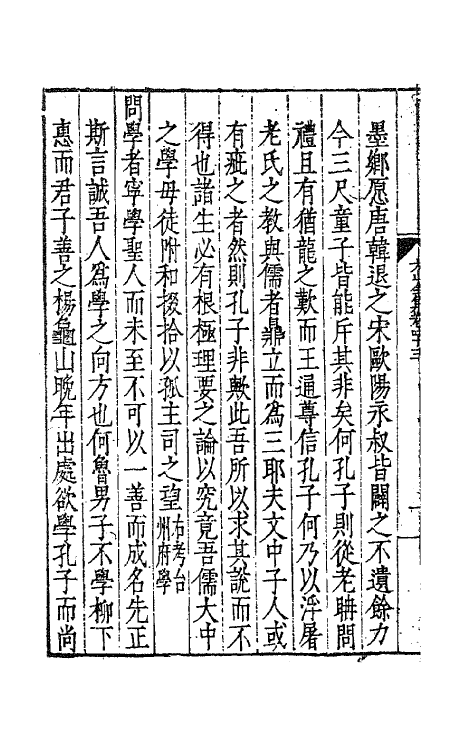 墨鄉愿唐韓退之宋歐陽永叔皆闢之不遺餘力
今三尺童子皆能斥其非矣何孔子則從老聃問
禮且有猶龍之歎而王通尊信孔子何乃以浮屠
老氏之教與儒者鼎立而為三耶夫文中子人或
有疵之者然則孔子非歟此吾所以求其說而不
得也諸生必有根極理要之論以究竟吾儒大中
之學毋徒附和掇拾以孤主司之望右考台州府學
問學者寧學聖人而未至不可以一善而成名先正
斯言誠吾人為學之向方也何魯男子不學柳下
惠而君子善之楊龜山晚年出處欲學孔子而尚